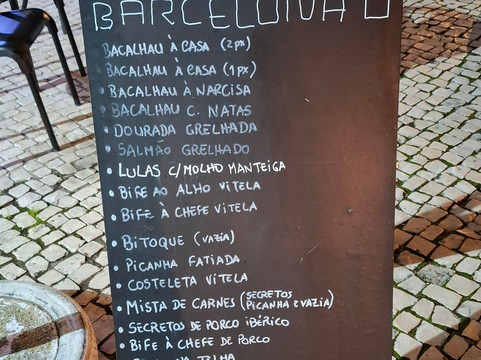 BARCELONA
BACALHAU À CASA (2px)
• BACALHAU À CASA (1px)
• BACALHAU À NARCISA
• BACALHAU C. NATAS
• DOURADA GRELHADA
• SALMÃO GRELHADO
• LULAS C/MOLHO MANTEIGA
• BIFE AO ALHO VITELA
• BIFE À CHEFE VITELA
• BITOQUE (VAZIA)
• PICANHA FATIADA
• COSTELETA VITELA
• MISTA DE CARNES (SECRETOS PICANHA E VAZIA)
• SECRETOS DE PORCO IBÉRICO
• BIFE À CHEFE DE PORCO
NA TELHA